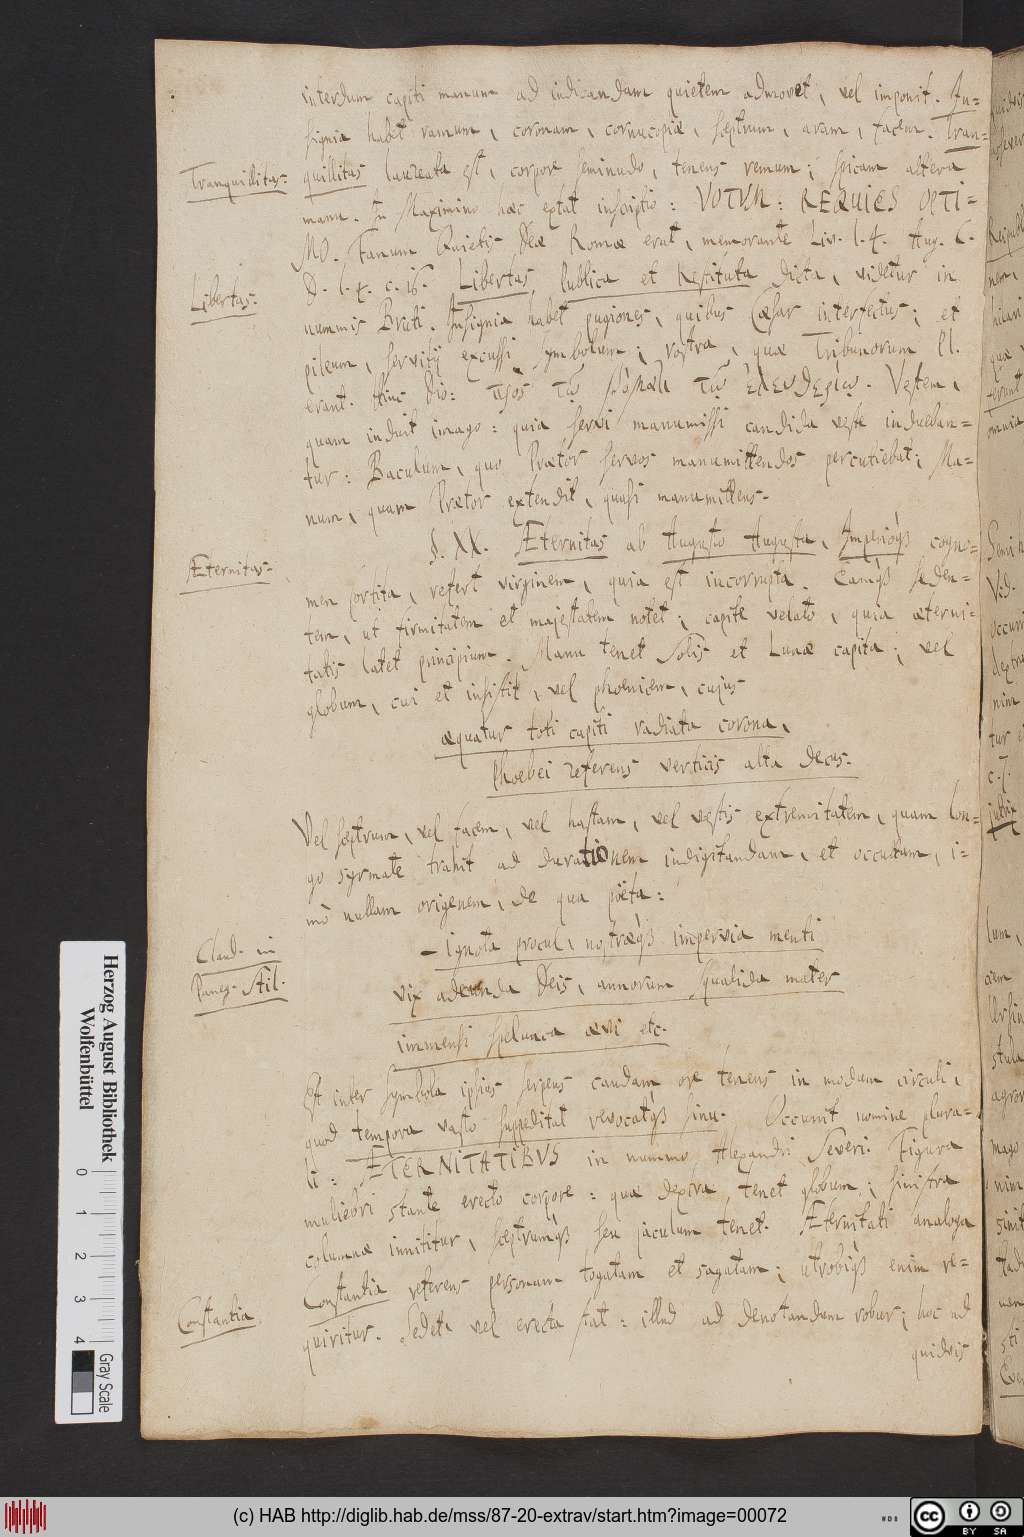 interdum capiti manum ad indicandam quietem admovet, vel imponit. In-
signia habet ramum, coronam, cornucopiæ, sceptrum, aram, facem. Tran-
Tranquillitas.
quillitas laureata est, corpore seminudo, tenens remum; spicam altera
manu. In Maximino hæc extat inscriptio: VOTUM: REQUIES OPTI-
MO. Fanum Quietis Deæ Romæ erat, memorante Liv. l. 4. Aug. C.
D. l. 4. c. 16. Libertas Publica et Restituta dicta, videtur in
Libertas.
nummis Bruti. Insignia habet pugiones, quibus Cæsar interfectus; et
pileum, servitij excussi symbolum; rostra, quæ Tribunorum Pl.
erant. Hinc Dio: . Vestem,
quam induit imago: quia servi manumissi candida veste indueban-
tur: Baculum, quo Prætor servos manumittendos percutiebat; Ma-
num, quam Prætor extendit, quasi manumittens.
§. XX. Æternitas ab Augusto Augusta, Imperiōqз cogno-
Æternitas.
men sortita, refert virginem, quia est incorrupta. Eamqз seden-
tem, ut firmitatem et majestatem notet; capite velato, quia æterni-
tatis latet principium. Manu tenet Solis et Lunæ capita; vel
globum, cui et insistit, vel phoenicem, cujus
æquatur toti capiti radiata corona,
Phoebei referens verticis alta decus.
Vel sceptrum, vel facem, vel hastam, vel vestis extremitatem, quam lon-
go syrmate trahit ad durationem indigitandam, et occultam, i-
mò nullam originem, de qua pöeta:
- ignota procul, nostræqз impervia menti
Claud. in
Paneg. Stil.
vix adeunda Deis, annorum squalida mater
immensi spelunca ævi etc.
Est inter symbola ipsius serpens caudam ore tenens in modum circuli,
quod tempora vasto suppeditat revocatqз sinu. Occurrit nomine plura-
li: ÆTERNITATIBVS in nummo Alexandri Severi. Figura
muliebri stante erecto corpore: quæ dextra tenet globum; sinistra
columnæ innititur, sceptrumqз seu jaculum tenet. Æternitati analoga
Constantia referens personam togatam et sagatam; utrobiqз enim re-
Constantia.
quiritur. Sedet, vel erecta stat: illud ad denotandum robur; hoc ad
quidvis
Herzog August Bibliothek
Wolfenbüttel
0 1 2 3 4
Gray Scale
(c) HAB http://diglib.hab.de/mss/87-20-extrav/start.htm?image=00072
WDB
cc BY SA